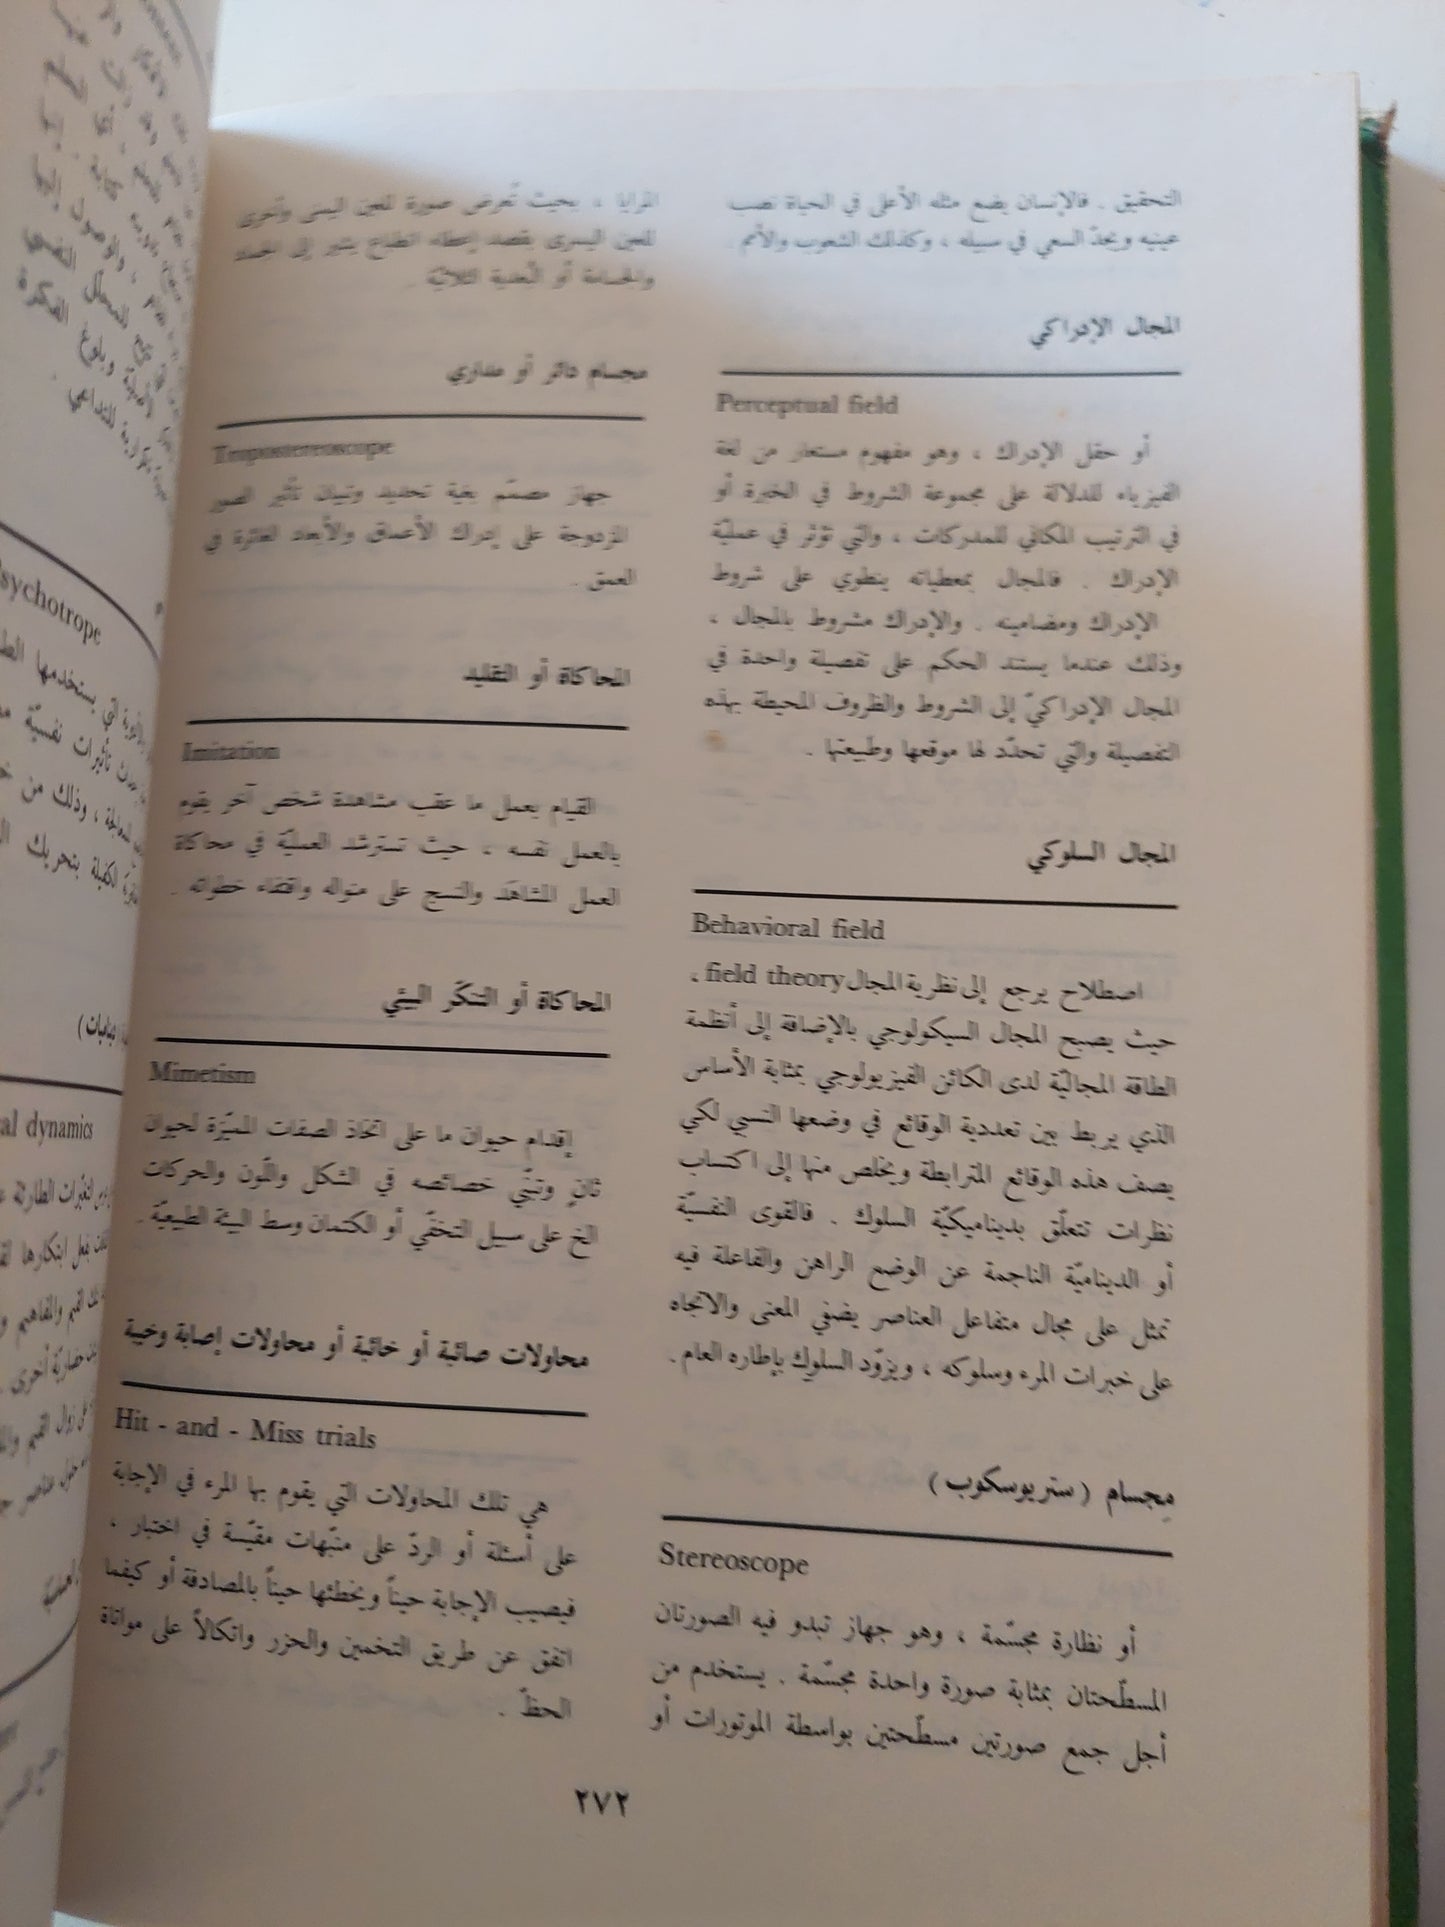 التحقيق . فالإنسان يضع مثله الأعلى في الحياة نصب
عينيه ويجدّ السعي في سبيله ، وكذلك الشعوب والأمم .
المجال الإدراكي
Perceptual field
أو حقل الإدراك ، وهو مفهوم مستعار من لغة
الفيزياء للدلالة على مجموعة الشروط في الخبرة أو
في الترتيب المكاني للمدركات ، والتي تؤثر في عمليّة
الإدراك . فالمجال بمعطياته ينطوي على شروط
الإدراك ومضامينه . والإدراك مشروط بالمجال ،
وذلك عندما يستند الحكم على تفصيلة واحدة في
المجال الإدراكيّ إلى الشروط والظروف المحيطة بهذه
التفصيلة والتي تحدّد لها موقعها وطبيعتها .
المجال السلوكي
Behavioral field
اصطلاح يرجع إلى نظرية المجال field theory ،
حيث يصبح المجال السيكولوجي بالإضافة إلى أنظمة
الطاقة المجاليّة لدى الكائن الفيزيولوجي بمثابة الأساس
الذي يربط بين تعددية الوقائع في وضعها النسبي لكي
يصف هذه الوقائع المترابطة ويخلص منها إلى اكتساب
نظرات تتعلّق بديناميكيّة السلوك . فالقوى النفسيّة
أو الديناميّة الناجمة عن الوضع الراهن والفاعلة فيه
تمثل على مجال متفاعل العناصر يضفي المعنى والاتجاه
على خبرات المرء وسلوكه ، ويزوّد السلوك بإطاره العام .
مِجسام ( ستريوسكوب )
Stereoscope
أو نظارة مجسّمة ، وهو جهاز تبدو فيه الصورتان
المسطّحتان بمثابة صورة واحدة مجسّمة . يستخدم من
أجل جمع صورتين مسطّحتين بواسطة الموتورات أو
المرايا ، بحيث تُعرض صورة للعين اليمنى وأخرى
للعين اليسرى بقصد إعطاء انطباع يشير إلى
والجسامة أو البُعدية الثلاثيّة .
مجسام دائر أو مداري
Tropostereoscope
جهاز مصمّم بغية تحديد وتبيان تأثير الصور
المزدوجة على إدراك الأعماق والأبعاد الغائرة في
العمق .
المحاكاة أو التقليد
Imitation
القيام بعمل ما عقب مشاهدة شخص آخر يقوم
بالعمل نفسه ، حيث تسترشد العمليّة في محاكاة
العمل المشاهَد والنسج على منواله واقتفاء خطواته .
المحاكاة أو التنكّر البيئي
Mimetism
إقدام حيوان ما على اتخاذ الصفات المميّزة لحيوان
ثانٍ وتبنّي خصائصه في الشكل واللّون والحركات
الخ على سبيل التخفّي أو الكتمان وسط البيئة الطبيعيّة .
محاولات صائبة أو خائبة أو محاولات إصابة وخيبة
Hit - and - Miss trials
هي تلك المحاولات التي يقوم بها المرء في الإجابة
على أسئلة أو الردّ على منبّهات مقيّسة في اختبار ،
فيصيب الإجابة حيناً ويخطئها حيناً بالمصادفة أو كيفما
اتفق عن طريق التخمين والحزر واتكالاً على مواتاة
الحظّ .
٢٧٢
Psychotrope
dynamics